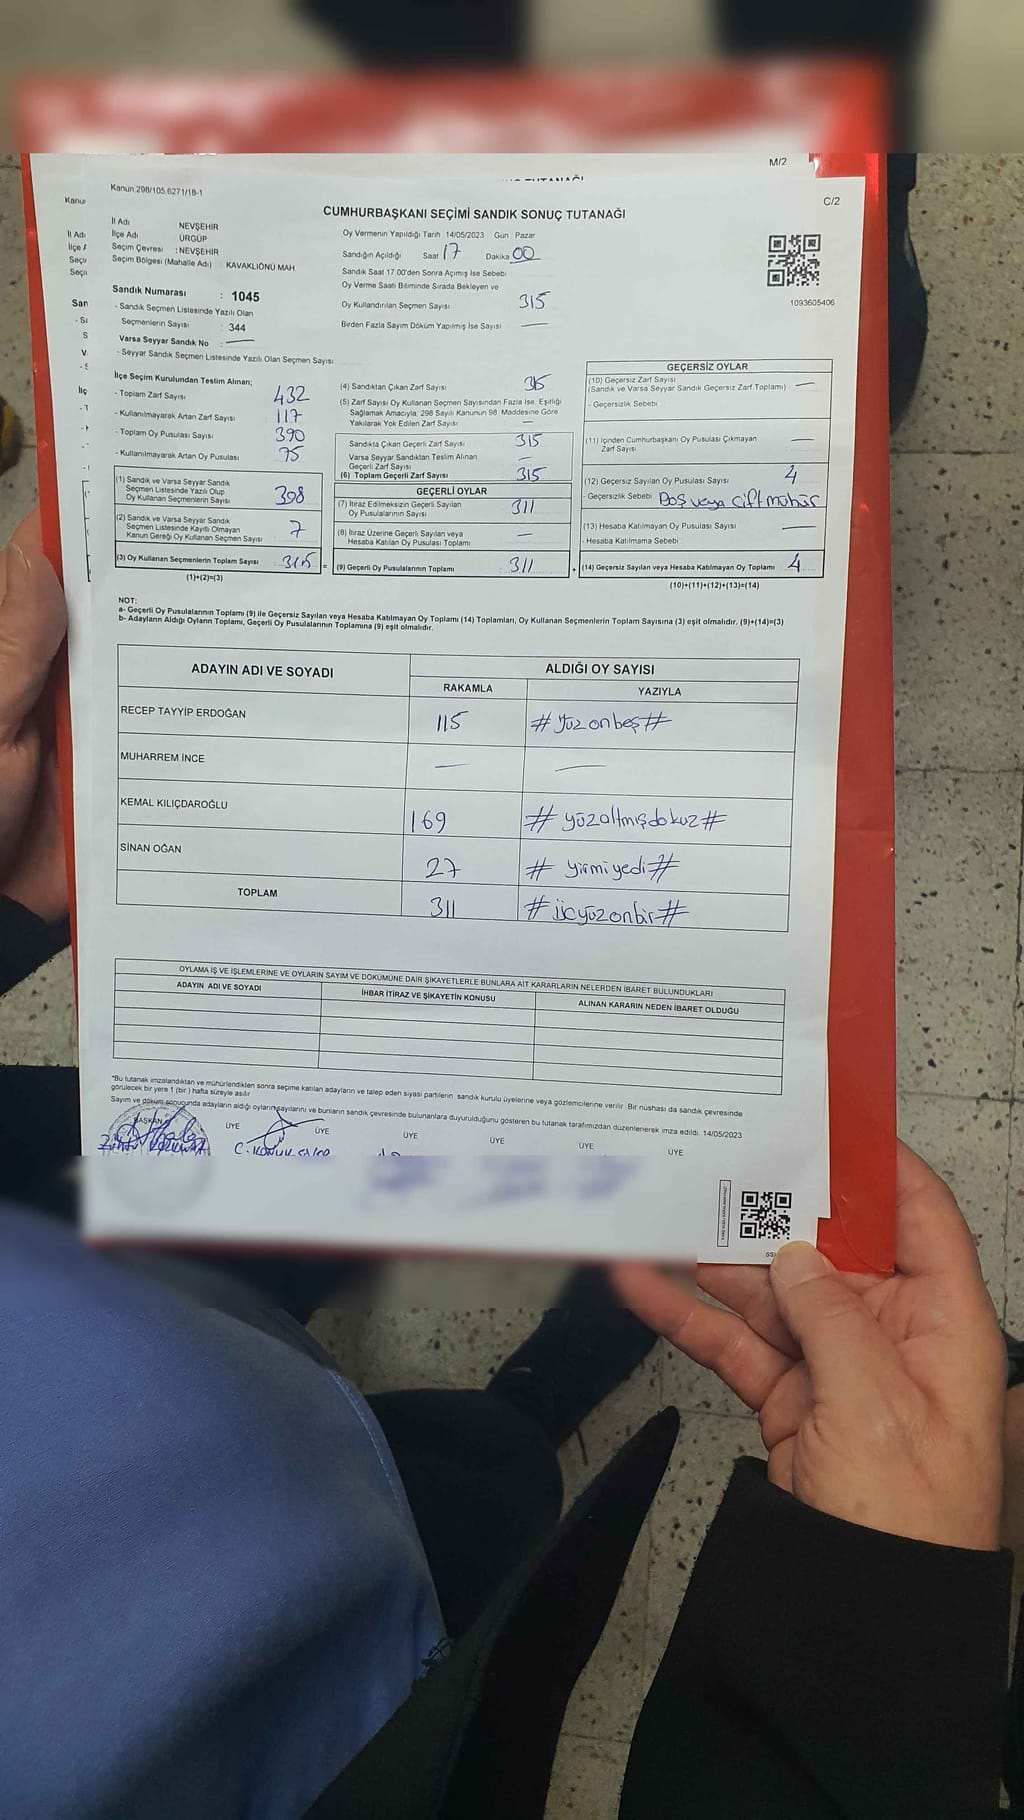 M/2
C/2
Kanun 298/105,6271/18-1
CUMHURBAŞKANI SEÇİMİ SANDIK SONUÇ TUTANAĞI
İl Adı NEVŞEHİR
İlçe Adı ÜRGÜP
Seçim Çevresi : NEVŞEHİR
Seçim Bölgesi (Mahalle Adı) KAVAKLIÖNÜ MAH
Sandık Numarası : 1045
- Sandık Seçmen Listesinde Yazılı Olan
Seçmenlerin Sayısı : 344
Varsa Seyyar Sandık No : —
- Seyyar Sandık Seçmen Listesinde Yazılı Olan Seçmen Sayısı
Oy Vermenin Yapıldığı Tarih :14/05/2023 Gün : Pazar
Sandığın Açıldığı Saat 17 Dakika 00
Sandık Saat 17.00'den Sonra Açımış İse Sebebi
Oy Verme Saati Bitiminde Sırada Bekleyen ve
Oy Kullandırılan Seçmen Sayısı 315
Birden Fazla Sayım Döküm Yapılmış İse Sayısı —
1093605406
İlçe Seçim Kurulundan Teslim Alınan;
- Toplam Zarf Sayısı 432
- Kullanılmayarak Artan Zarf Sayısı 117
- Toplam Oy Pusulası Sayısı 390
- Kullanılmayarak Artan Oy Pusulası 75
(1) Sandık ve Varsa Seyyar Sandık
Seçmen Listesinde Yazılı Olup
Oy Kullanan Seçmenlerin Sayısı 308
(2) Sandık ve Varsa Seyyar Sandık
Seçmen Listesinde Kayıtlı Olmayan
Kanun Gereği Oy Kullanan Seçmen Sayısı 7
(3) Oy Kullanan Seçmenlerin Toplam Sayısı 315 =
(1)+(2)=(3)
(4) Sandıktan Çıkan Zarf Sayısı 315
(5) Zarf Sayısı Oy Kullanan Seçmen Sayısından Fazla İse, Eşitliği
Sağlamak Amacıyla, 298 Sayılı Kanunun 98. Maddesine Göre
Yakılarak Yok Edilen Zarf Sayısı —
Sandıkta Çıkan Geçerli Zarf Sayısı 315
Varsa Seyyar Sandıktan Teslim Alınan
Geçerli Zarf Sayısı —
(6) Toplam Geçerli Zarf Sayısı 315
GEÇERLİ OYLAR
(7) İtiraz Edilmeksizin Geçerli Sayılan
Oy Pusulalarının Sayısı 311
(8) İtiraz Üzerine Geçerli Sayılan veya
Hesaba Katılan Oy Pusulası Toplamı —
(9) Geçerli Oy Pusulalarının Toplamı 311 +
GEÇERSİZ OYLAR
(10) Geçersiz Zarf Sayısı
(Sandık ve Varsa Seyyar Sandık Geçersiz Zarf Toplamı) —
- Geçersizlik Sebebi
(11) İçinden Cumhurbaşkanı Oy Pusulası Çıkmayan
Zarf Sayısı —
(12) Geçersiz Sayılan Oy Pusulası Sayısı 4
- Geçersizlik Sebebi Boş veya çift mühür
(13) Hesaba Katılmayan Oy Pusulası Sayısı —
- Hesaba Katılmama Sebebi
(14) Geçersiz Sayılan veya Hesaba Katılmayan Oy Toplamı 4
(10)+(11)+(12)+(13)=(14)
NOT:
a- Geçerli Oy Pusulalarının Toplamı (9) ile Geçersiz Sayılan veya Hesaba Katılmayan Oy Toplamı (14) Toplamları, Oy Kullanan Seçmenlerin Toplam Sayısına (3) eşit olmalıdır. (9)+(14)=(3)
b- Adayların Aldığı Oyların Toplamı, Geçerli Oy Pusulalarının Toplamına (9) eşit olmalıdır.
ADAYIN ADI VE SOYADI ALDIĞI OY SAYISI
RAKAMLA YAZIYLA
RECEP TAYYİP ERDOĞAN 115 #yüzonbeş#
MUHARREM İNCE — —
KEMAL KILIÇDAROĞLU 169 #yüzaltmışdokuz#
SİNAN OĞAN 27 #yirmiyedi#
TOPLAM 311 #üçyüzonbir#
OYLAMA İŞ VE İŞLEMLERİNE VE OYLARIN SAYIM VE DÖKÜMÜNE DAİR ŞİKAYETLERLE BUNLARA AİT KARARLARIN NELERDEN İBARET BULUNDUKLARI
ADAYIN ADI VE SOYADI İHBAR İTİRAZ VE ŞİKAYETİN KONUSU ALINAN KARARIN NEDEN İBARET OLDUĞU
*Bu tutanak imzalandıktan ve mühürlendikten sonra seçime katılan adayların ve talep eden siyasi partilerin sandık kurulu üyelerine veya gözlemcilerine verilir. Bir nüshası da sandık çevresinde
görülecek bir yere 1 (bir) hafta süreyle asılır
Sayım ve döküm sonucunda adayların aldığı oyların sayılarını ve bunların sandık çevresinde bulunanlara duyurulduğunu gösteren bu tutanak tarafımızdan düzenlenerek imza edildi. 14/05/2023
BAŞKAN ÜYE ÜYE ÜYE ÜYE ÜYE ÜYE